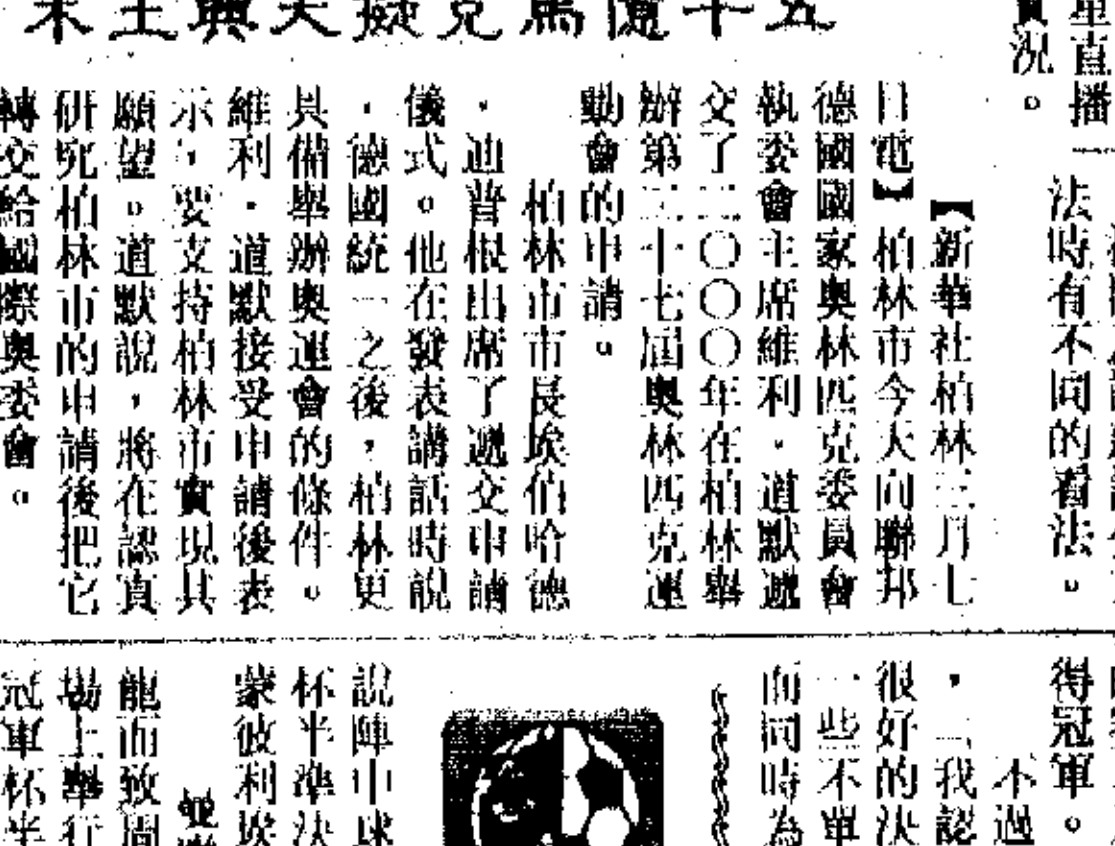 未主興夫擬克馬億千五
重直播
實況。
法時有不同的看法。
【新華社柏林三月七
日電】柏林市今天向聯邦
德國國家奧林匹克委員會
執委會主席維利·道默遞
交了二〇〇〇年在柏林舉
辦第二十七屆奧林匹克運
動會的申請。
柏林市市長埃伯哈德
·迪普根出席了遞交申請
儀式。他在發表講話時說
，德國統一之後，柏林更
具備舉辦奧運會的條件。
維利·道默接受申請後表
示，要支持柏林市實現其
願望。道默說，將在認真
研究柏林市的申請後把它
轉交給國際奧委會。
得冠軍。
不過
，「我認
很好的決
一些不單
而同時為
說陣中球
杯半準決
蒙彼利埃
龍而致周
場上舉行
冠軍杯半